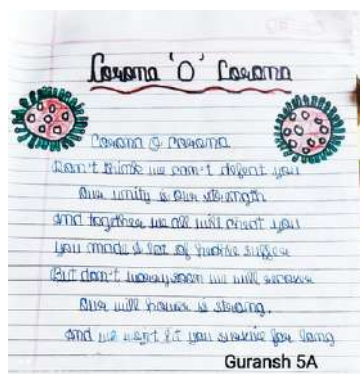 Corona 'O' Corona
Corona O Corona
Don't think we can't defeat you
Our unity is our strength
And together we all will cheat you
You made a lot of people suffer
But don't worry soon we will recover
Our will power is strong.
And we won't let you survive for long
Guransh 5A